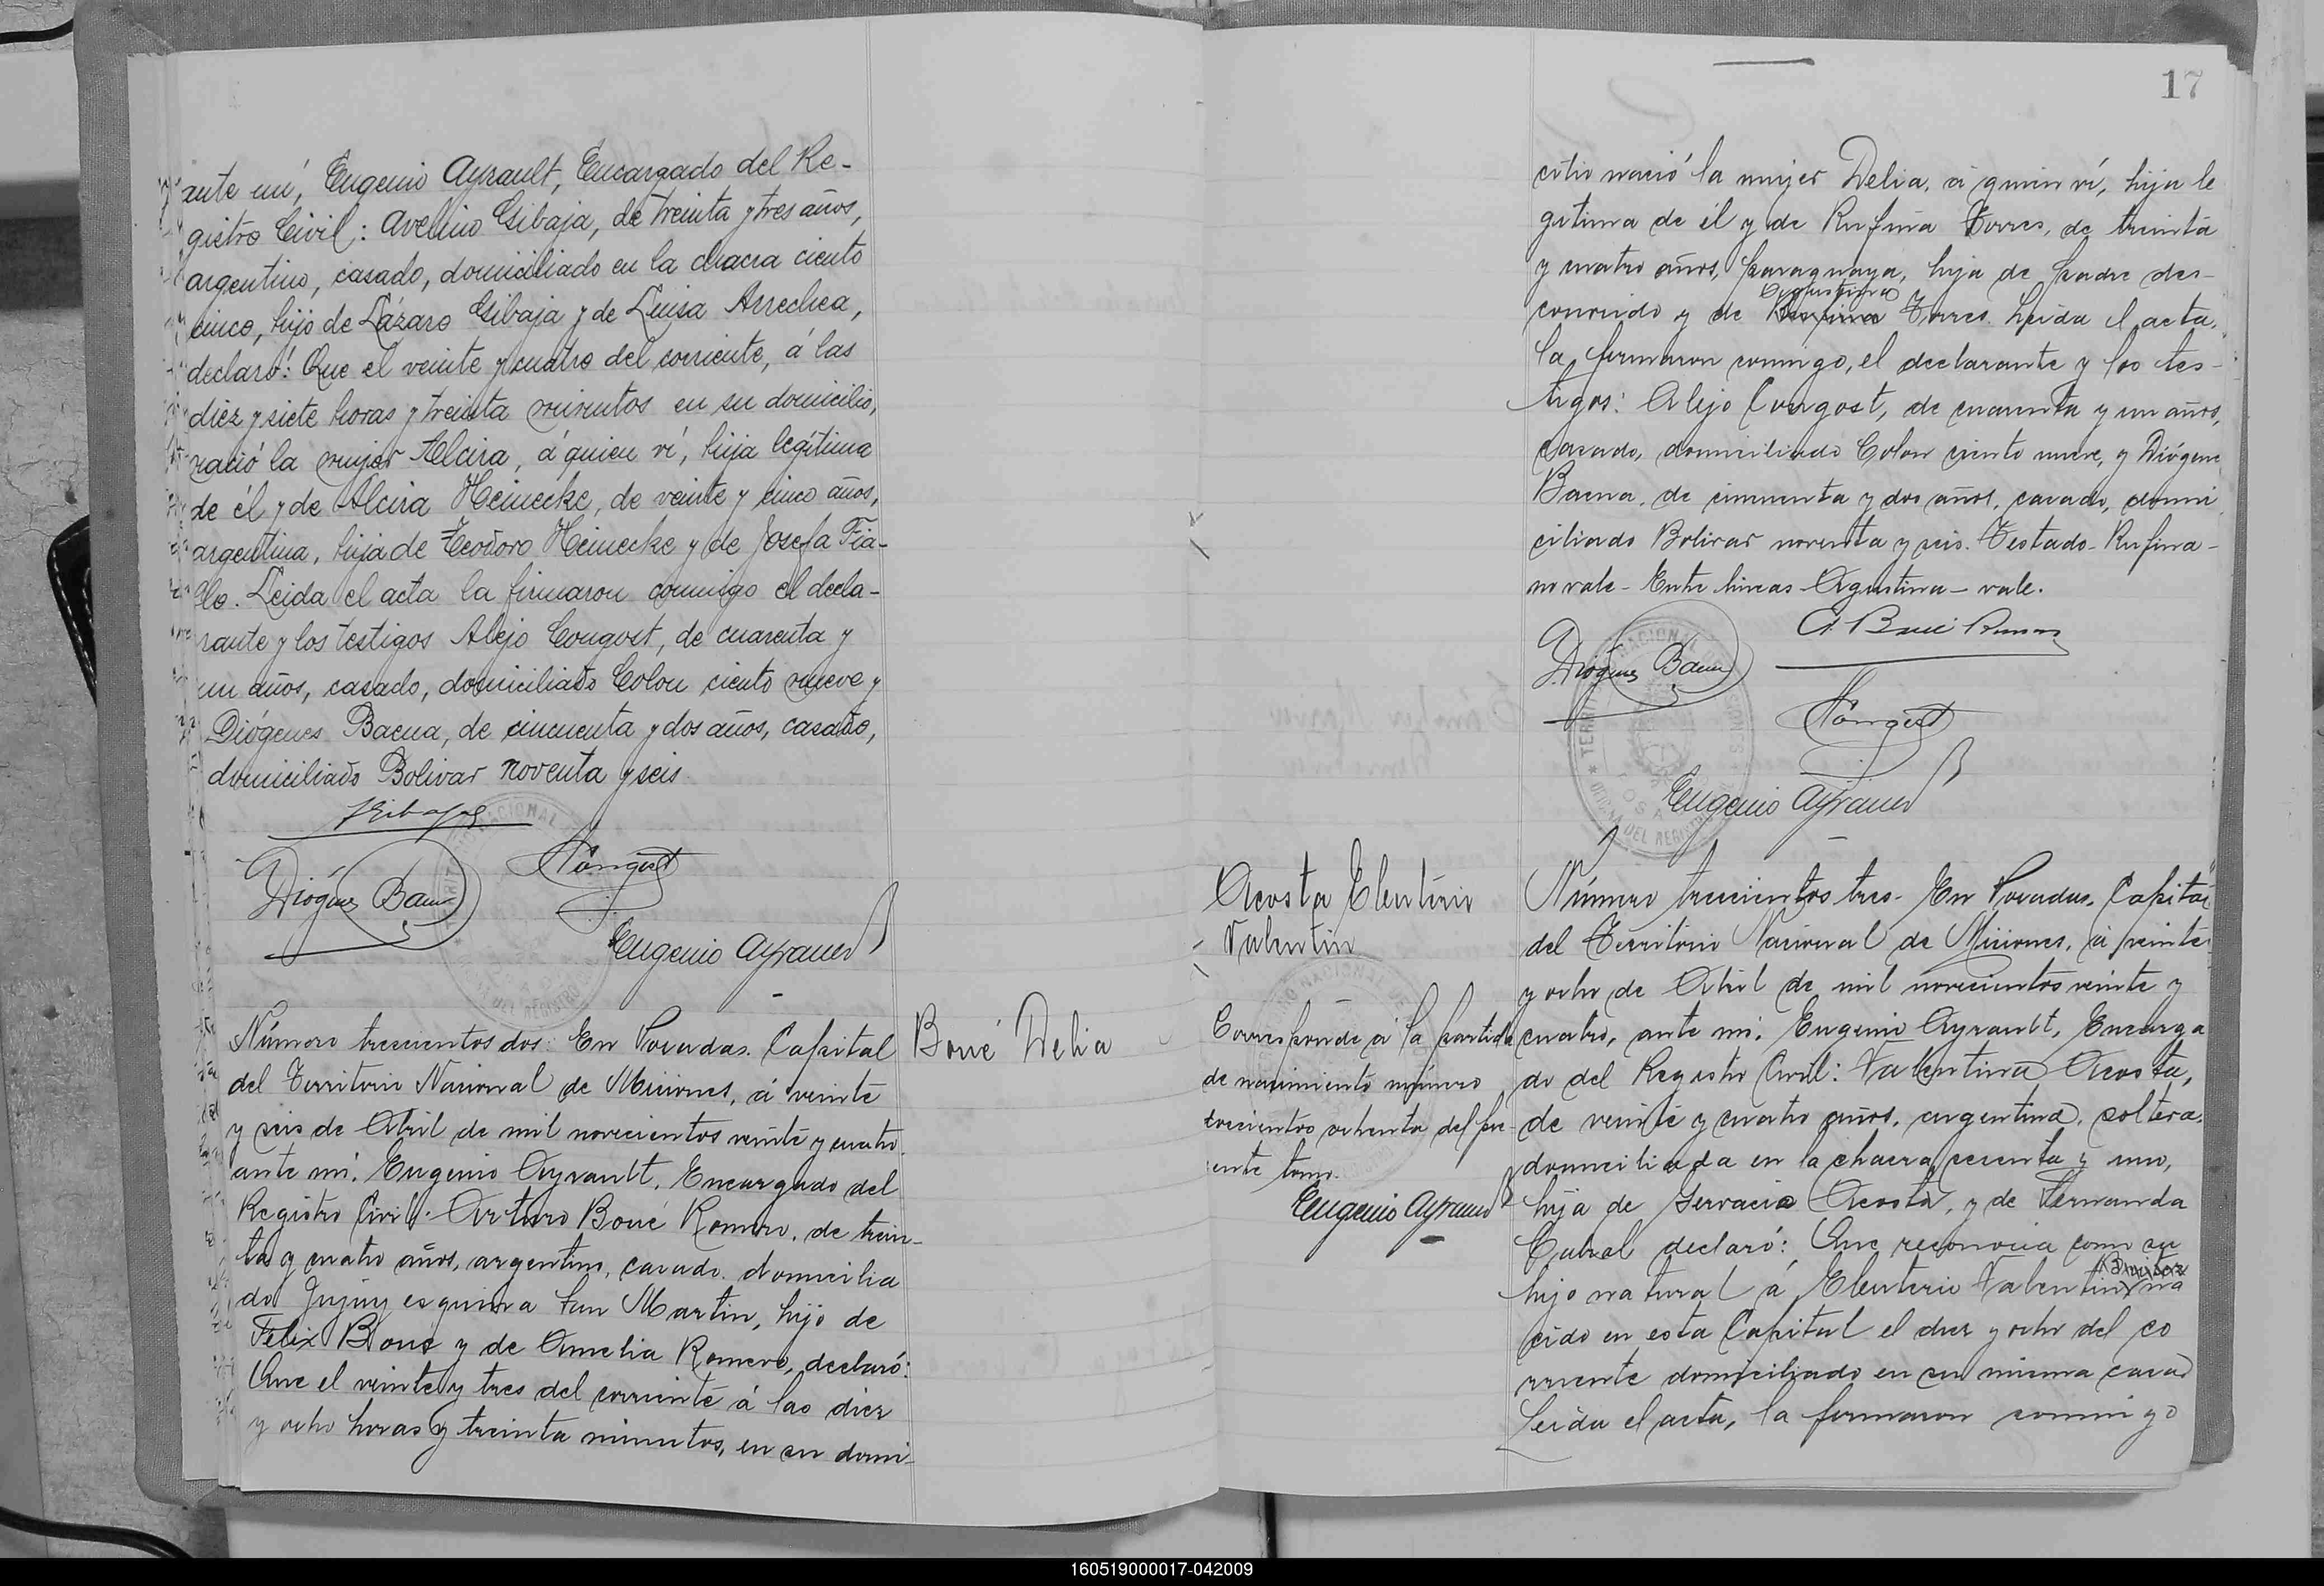 ante mí, Eugenio Ayrault, Encargado del Re-
gistro Civil: Avelino Gibaja, de treinta y tres años,
argentino, casado, domiciliado en la chacra ciento
cinco, hijo de Lázaro Gibaja y de Luisa Arrechea,
declaró: Que el veinte y cuatro del corriente, á las
diez y siete horas y treinta minutos en su domicilio,
nació la mujer Alcira, á quien ví, hija legítima
de él y de Alcira Heinecke, de veinte y cinco años,
argentina, hija de Teodoro Heinecke y de Josefa Fia-
llo. Leida el acta la firmaron conmigo el decla-
rante y los testigos Alejo Congost, de cuarenta y
un años, casado, domiciliado Colon ciento nueve y
Diógenes Baena, de cincuenta y dos años, casado,
domiciliado Bolivar noventa y seis.
Gibaja
Diógenes Baena
Congost
Eugenio Ayrault
Número trescientos dos: En Posadas. Capital
del Territorio Nacional de Misiones, á veinte
y seis de Abril de mil novecientos veinte y cuatro.
ante mi. Eugenio Ayrault. Encargado del
Registro Civil: Arturo Boué Romero, de trein-
ta y cuatro años, argentino, casado. domicilia
do Jujuy esquina San Martin, hijo de
Felix Boué y de Amelia Romero, declaró:
Que el veinte y tres del corriente á las diez
y ocho horas y treinta minutos, en su domi-
Boué Delia
17
cilio nació la mujer Delia, á quien ví, hija le
gitima de él y de Rufina Torres, de treinta
y cuatro años, paraguaya, hija de padre des-
Agustina
conocido y de Rufina Torres. Leida el acta,
la firmaron conmigo, el declarante y los tes-
tigos: Alejo Congost, de cuarenta y un años,
casado, domiciliado Colon ciento nueve, y Diógene
Baena, de cincuenta y dos años, casado, domi
ciliado Bolivar noventa y seis. Testado - Rufina -
no vale - Entre lineas - Agustina - vale.
A. Boué Romero
Diógenes Baena
Congost
Eugenio Ayrault
Acosta Eleuterio
Valentin
Corresponde á la partida
de nacimiento número
doscientos ochenta del pre
sente tomo.
Eugenio Ayrault
Número trescientos tres - En Posadas. Capital
del Territorio Nacional de Misiones, á veinte
y ocho de Abril de mil novecientos veinte y
cuatro, ante mi. Eugenio Ayrault, Encarga
do del Registro Civil: Valentina Acosta,
de veinte y cuatro años, argentina, soltera,
domiciliada en la chacra sesenta y uno,
hija de Servacio Acosta, y de Fernanda
Cabral declaró: Que reconocia como su
hijo natural á Eleuterio Valentin na
cido en esta Capital el diez y ocho del co
rriente domiciliado en su misma casa
Leida el acta, la firmaron conmigo
160519000017-042009